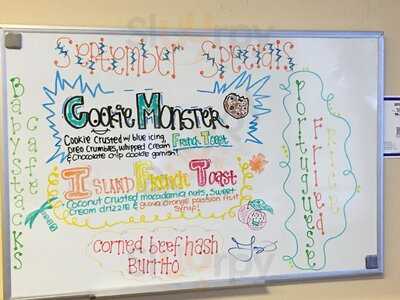 September Specials
Babystacks
Café
Cookie Monster
Cookie Crusted w/ blue icing,
Oreo Crumbles, whipped cream French Toast
& Chocolate chip cookie garnish!
Island French Toast
Coconut Crusted macadamia nuts, Sweet
Cream drizzle & guava orange passion fruit
Syrup!
corned beef hash
Burrito
Portuguese
Fried